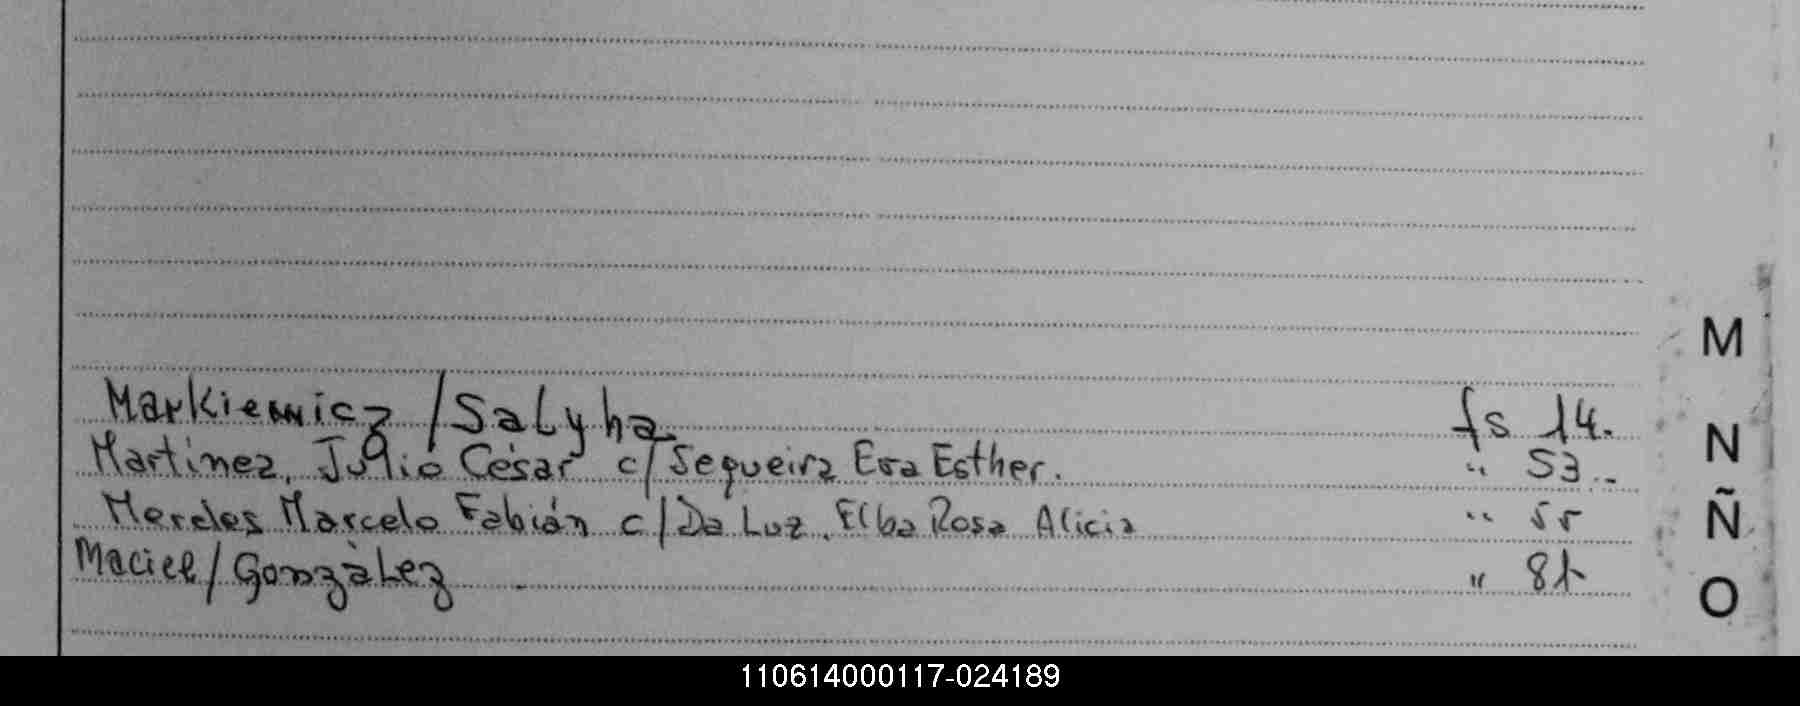 Markiewicz / Salyha fs 14.
Martinez, Julio César c/ Sequeira Eva Esther. " 53..
Mereles Marcelo Fabián c/ Da Luz, Elba Rosa Alicia " 55
Maciel / Gonzàlez "
M
N
Ñ
O
110614000117-024189